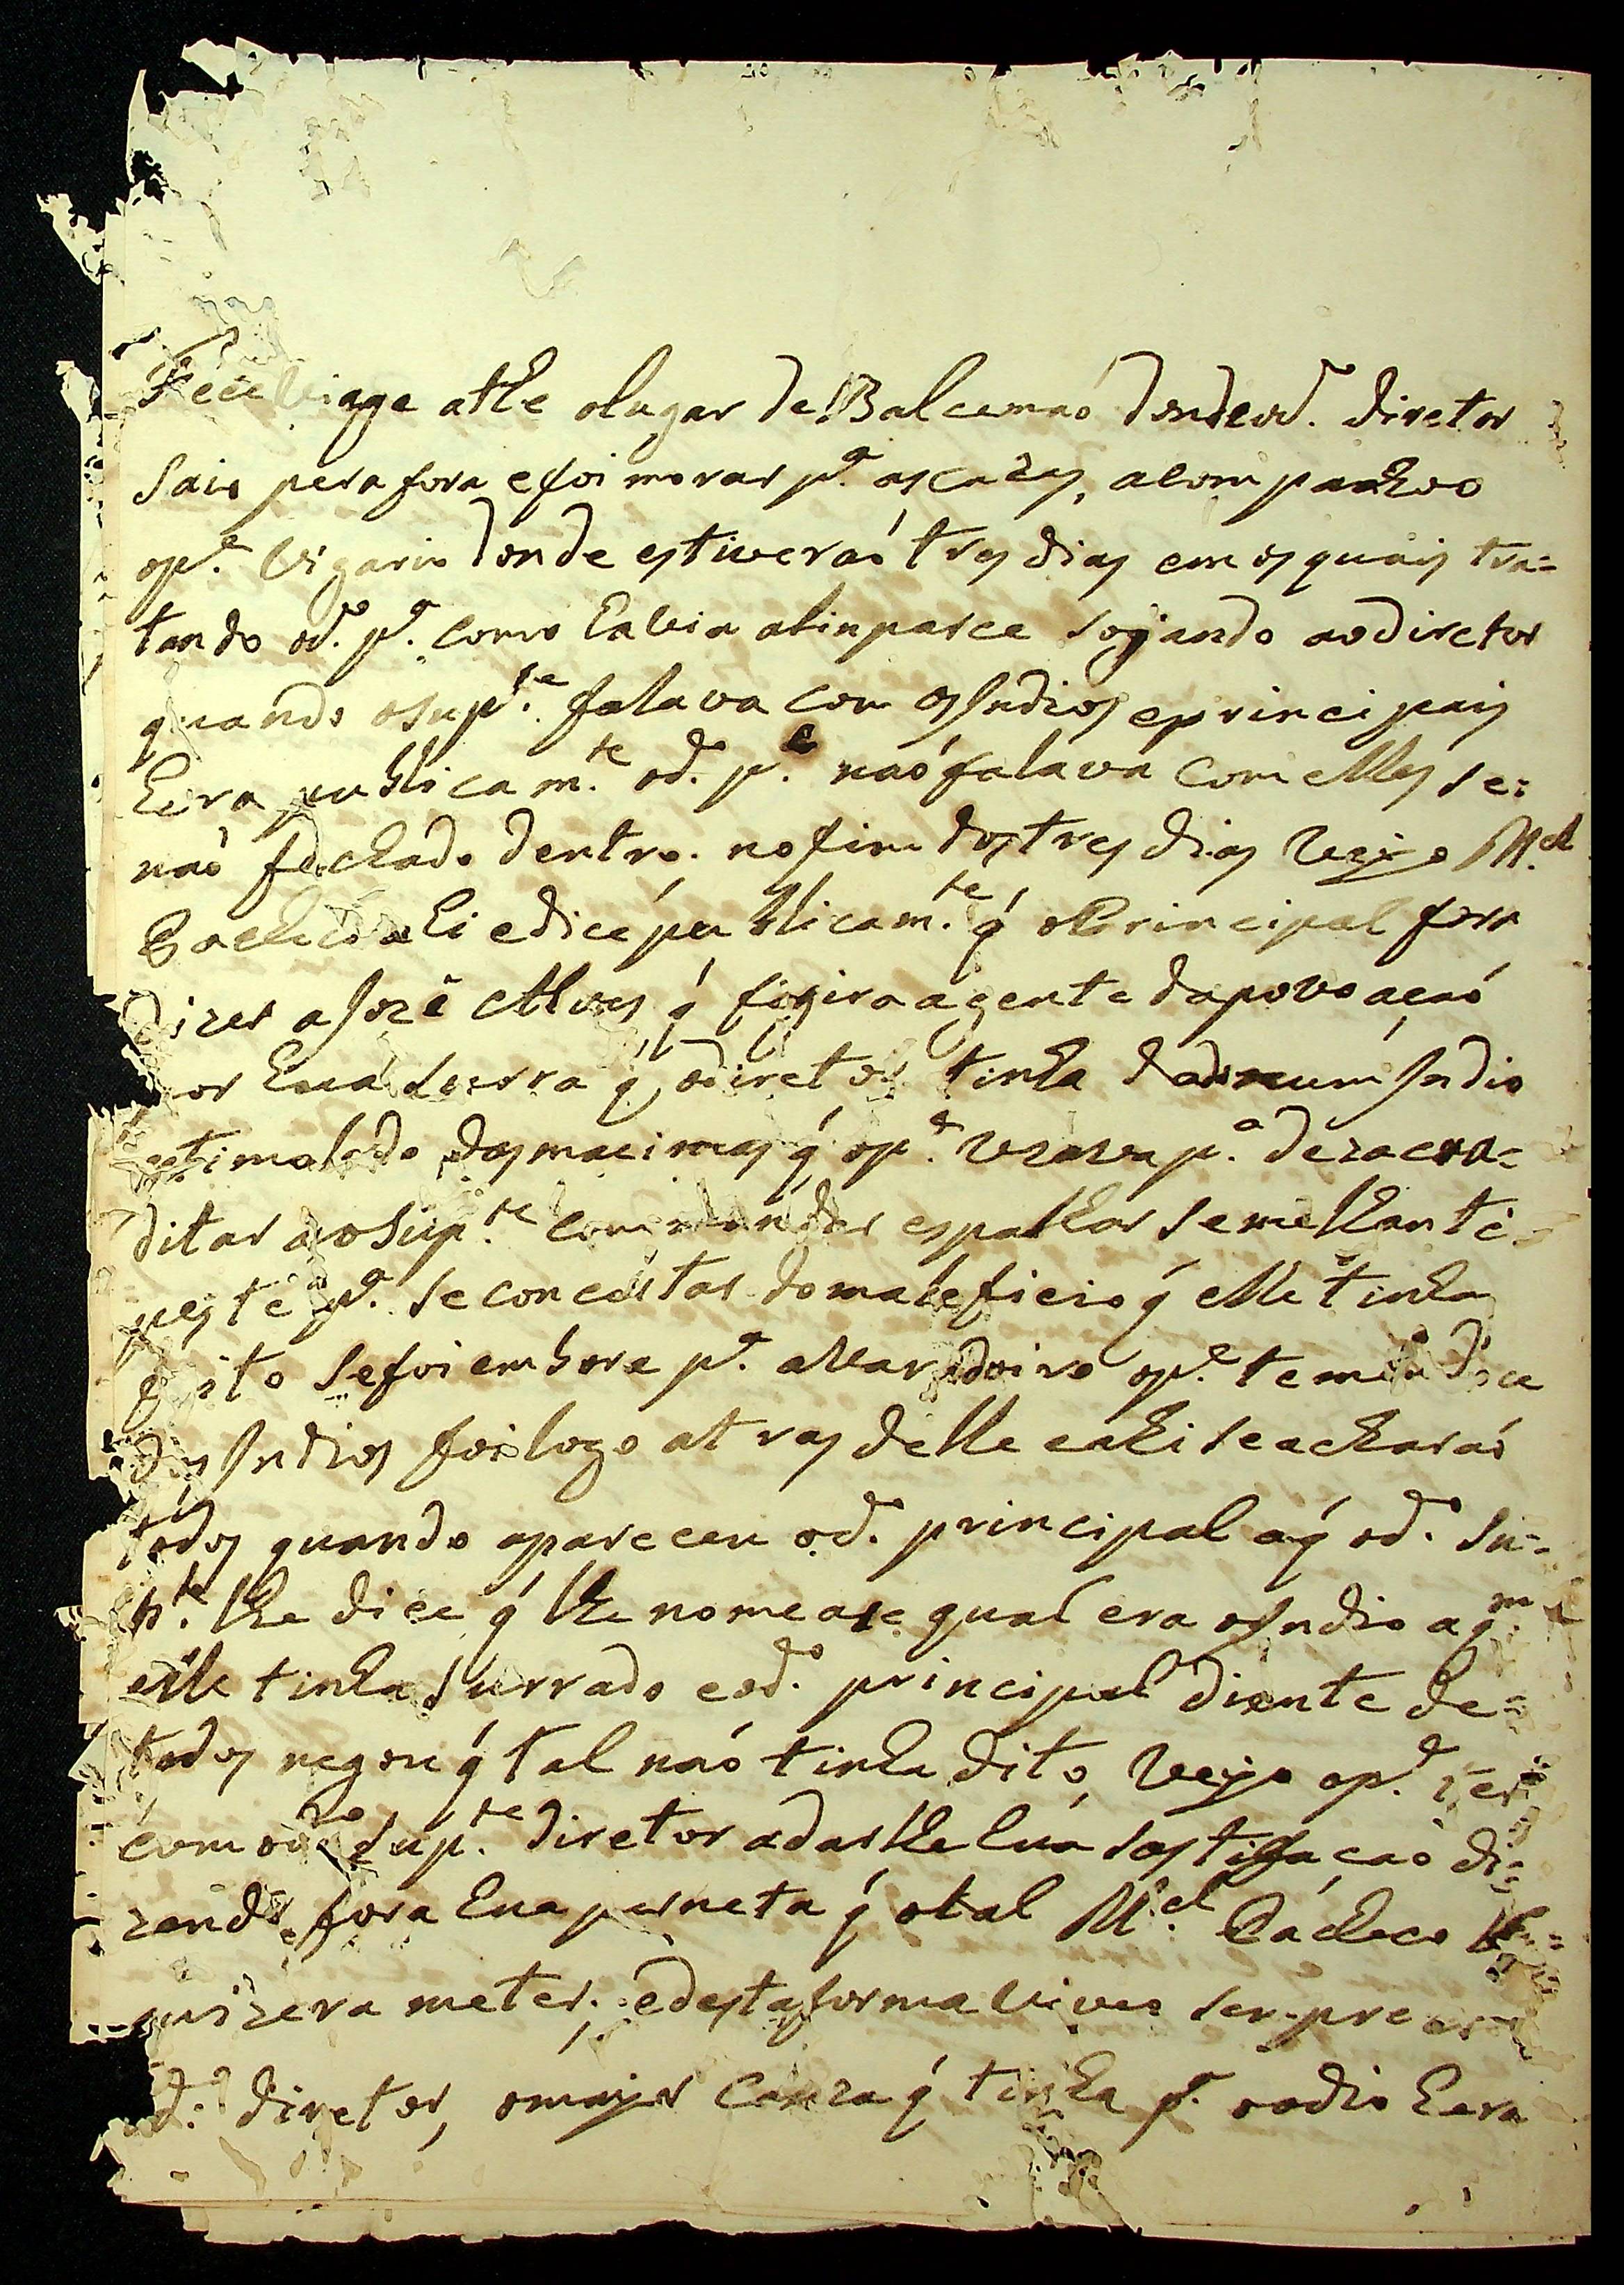 Fece viagge athe olugar de Balcemaó donde od.º diretor
Saio pera fora e foi morar p.ª as cazas, acompanhoo
op.e Vigario donde estiveraó tres dias em os quais tra=
tando od.º p.e como havia alinpasce Sogando aodiretor
quando osup.te falava com os Indios eprincipais
hera publicam.te od.º p.e naó falava com elles se=
naó fechado dentro. no fim dos tres dias veyo M.el
Pacheco ahi e dice publicam.te q̃ oPrincipal fora
dizer a Jozé Alves q̃ fogira a gente dapovoaçaó
por huá surra q̃ odiretor tinha dado num Indio
estimolado das macimas q̃ op.e uzava p.ª dezacra=
ditar aoSup.te com mandar espalhar semelhante
peste p.ª se concertar do maleficio q̃ elle tinha
feito se foi embora p.ª alvaradoiro op.e temendoce
dos Indios foi logo atras delle e ahi se acharaó
todos quando apareceu od.º principal aq̃ od.º Su=
p.te lhe dice q̃ lhe nomease qual era oIndio aq̃m
elle tinha surrado e od.º principal diante de=
todos negou q̃ tal naó tinha dito, veyo op.e ter
com od.º Sup.te diretor adarlhe hua sastifaçaó di=
zendo fora hua parneta q̃ otal M.el Pacheco lhe=
quizera meter; e desta forma viveo senpre
d.º diretor, omayor cauza q̃ tinha p.ª oodio hera